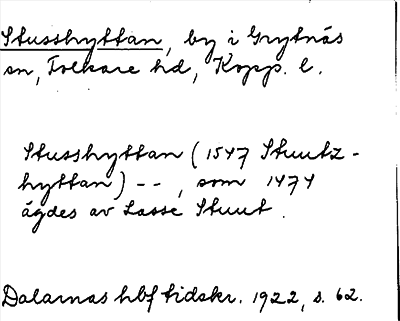 Stusshyttan, by i Grytnäs
sn, Folkare hd, Kopp. l.
Stusshyttan (1547 Stuutz-
hyttan) --, som 1474
ägdes av Lasse Stuut.
Dalarnas hbf tidskr. 1922, s. 62.